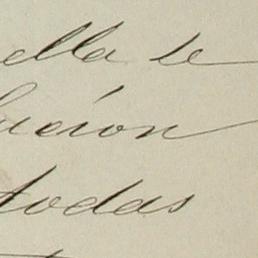 ella se
lución
todas